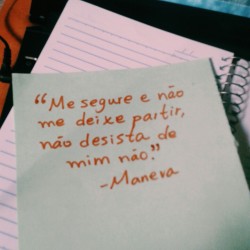 “Me segure e não
me deixe partir,
não desista de
mim não.”
-Maneva